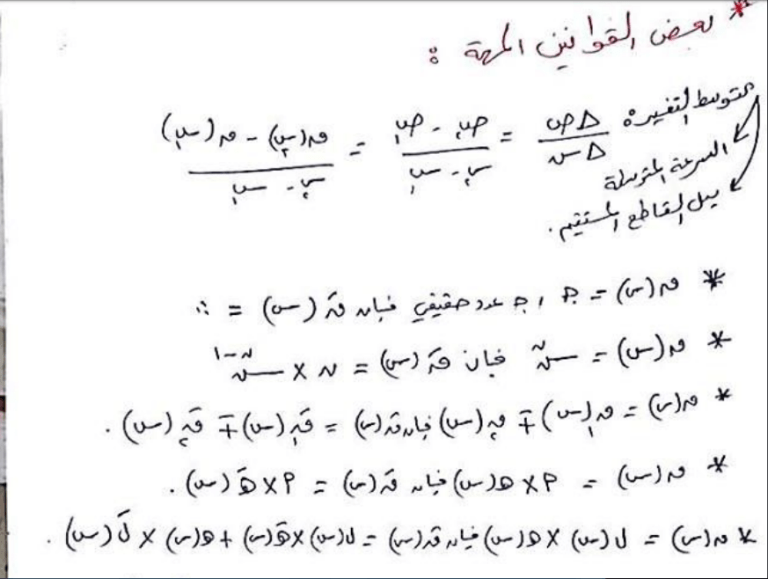 * بعض القوانين المهمة :
متوسط التغير = Δص / Δس = (ص₂ - ص₁) / (س₂ - س₁) = (ق(س₂) - ق(س₁)) / (س₂ - س₁)
السرعة المتوسطة
ميل القاطع المستقيم .
* ق(س) = جـ ، جـ عدد حقيقي فإن قَ(س) = ...
* ق(س) = سⁿ فإن قَ(س) = ن × سⁿ⁻¹
* ق(س) = ق₁(س) ∓ ق₂(س) فإن قَ(س) = قَ₁(س) ∓ قَ₂(س) .
* ق(س) = P × هـ(س) فإن قَ(س) = P × هـَ(س) .
* ق(س) = ل(س) × هـ(س) فإن قَ(س) = ل(س) × هـَ(س) + هـ(س) × لَ(س) .